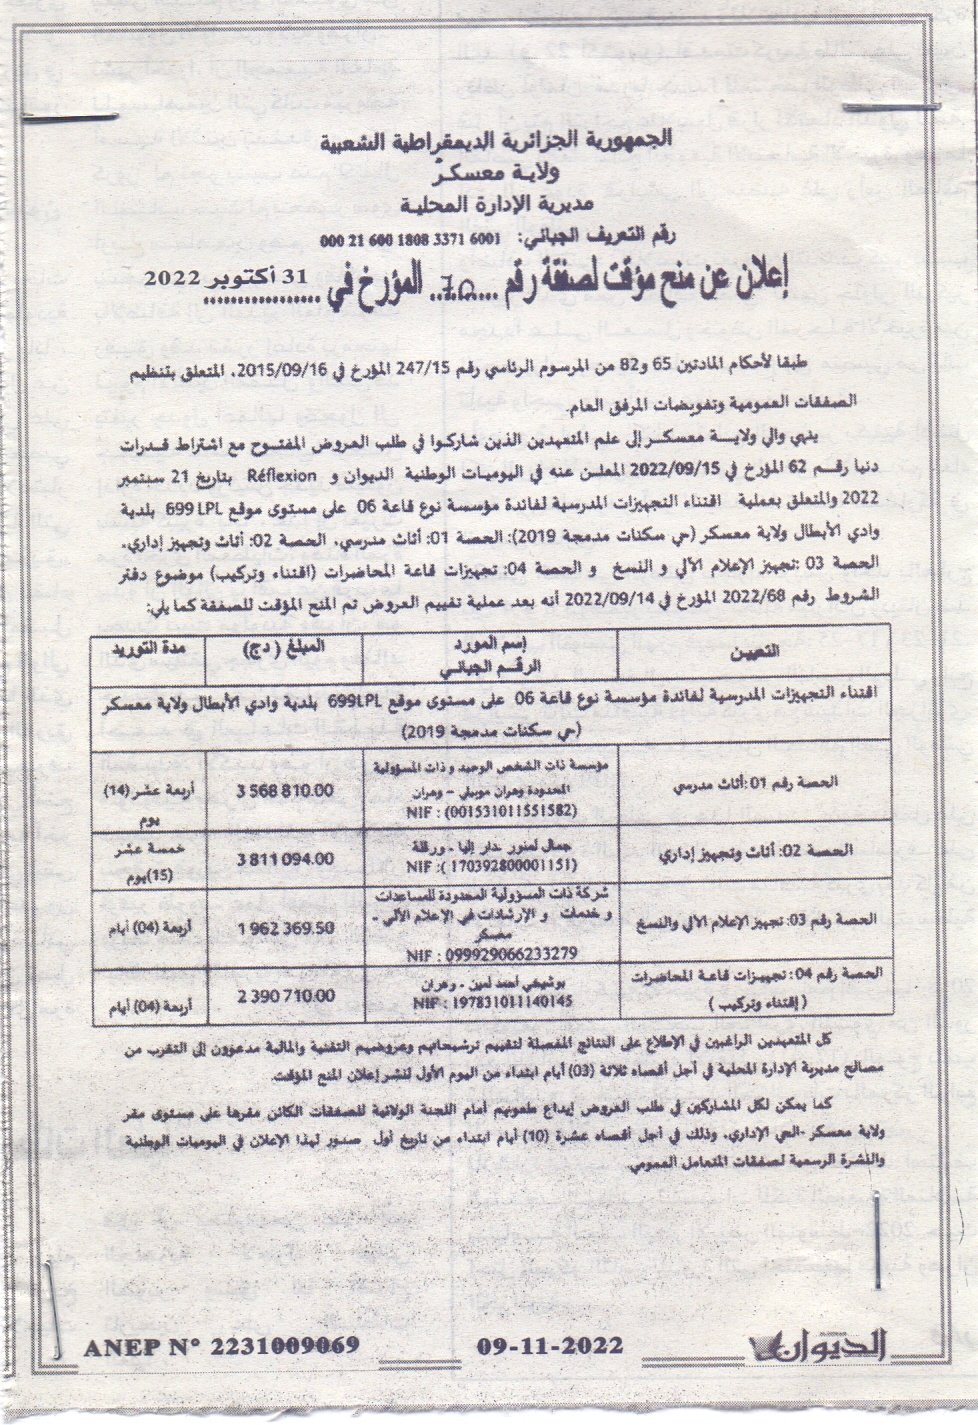 الجمهورية الجزائرية الديمقراطية الشعبية
ولاية معسكر
مديرية الإدارة المحلية
رقم التعريف الجبائي: 000 21 600 1808 3371 6001
إعلان عن منح مؤقت لصفقة رقم ............ المؤرخ في 31 أكتوبر 2022
طبقا لأحكام المادتين 65 و82 من المرسوم الرئاسي رقم 247/15 المؤرخ في 2015/09/16، المتعلق بتنظيم
الصفقات العمومية وتفويضات المرفق العام.
ينهي والي ولايـــة معسكـر إلى علم المتعهدين الذين شاركوا في طلب العروض المفتوح مع اشتراط قدرات
دنيا رقـم 62 المؤرخ في 2022/09/15 المعلـن عنه في اليوميات الوطنية الديوان و Réflexion بتاريخ 21 سبتمبر
2022 والمتعلق بعملية اقتناء التجهيزات المدرسية لفائدة مؤسسة نوع قاعة 06 على مستوى موقع 699 LPL بلدية
وادي الأبطال ولاية معسكر (حي سكنات مدمجة 2019): الحصة 01: أثاث مدرسي، الحصة 02: أثاث وتجهيز إداري،
الحصة 03 :تجهيز الإعلام الآلي و النسخ و الحصة 04: تجهيزات قاعة المحاضرات (اقتناء وتركيب) موضوع دفتر
الشروط رقم 2022/68 المؤرخ في 2022/09/14 أنه بعد عملية تقييم العروض تم المنح المؤقت للصفقة كما يلي:
التعيين إسم المورد المبلغ ( دج) مدة التوريد
الرقم الجبائي
اقتناء التجهيزات المدرسية لفائدة مؤسسة نوع قاعة 06 على مستوى موقع 699LPL بلدية وادي الأبطال ولاية معسكر
(حي سكنات مدمجة 2019)
الحصة رقم 01 :أثاث مدرسي
مؤسسة ذات الشخص الوحيد و ذات المسؤولية
المحدودة وهران موبيلي – وهران
NIF : (001531011551582)
3 568 810.00
أربعة عشر (14)
يوم
الحصة 02: أثاث وتجهيز إداري
جمال لمنور -دار إليا - ورقلة
NIF :( 170392800001151)
3 811 094.00
خمسة عشر
(15)يوم
الحصة رقم 03: تجهيز الإعلام الآلي والنسخ
شركة ذات المسؤولية المحدودة للمساعدات
و خدمات و الإرشادات في الإعلام الآلي -
معسكر
NIF : 099929066233279
1 962 369.50
أربعة (04) أيام
الحصة رقم 04: تجهيزات قاعة المحاضرات
( إقتناء وتركيب )
بوشيخي أحمد لمين - وهران
NIF : 197831011140145
2 390 710.00
أربعة (04) أيام
كل المتعهدين الراغبين في الإطلاع على النتائج المفصلة لتقييم ترشيحاتهم وعروضهم التقنية والمالية مدعوون إلى التقرب من
مصالح مديرية الإدارة المحلية في أجل أقصاه ثلاثة (03) أيام ابتداء من اليوم الأول لنشر إعلان المنح المؤقت.
كما يمكن لكل المشاركين في طلب العروض إيداع طعونهم أمام اللجنة الولائية للصفقات الكائن مقرها على مستوى مقر
ولاية معسكر -الحي الإداري، وذلك في أجل أقصاه عشرة (10) أيام ابتداء من تاريخ أول صدور لهذا الإعلان في اليوميات الوطنية
والنشرة الرسمية لصفقات المتعامل العمومي.
ANEP N° 2231009069
09-11-2022
الديوان